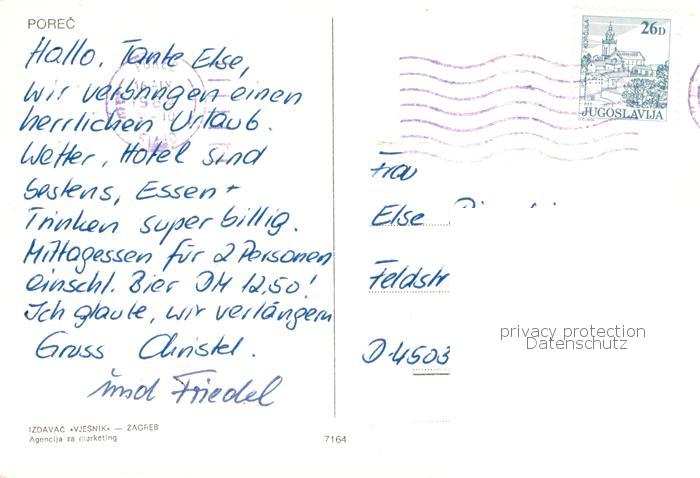 POREČ
Hallo. Tante Else,
wir verbringen einen
herrlichen Urlaub.
Wetter, Hotel sind
bestens, Essen +
Trinken super billig.
Mittagessen für 2 Personen
einschl. Bier DM 12,50!
Ich glaube, wir verlängern
Gruss Christel.
und Friedel
IZDAVAČ «VJESNIK» — ZAGREB
Agencija za marketing
7164
26D
JUGOSLAVIJA
Frau
Else
Feldstr
D-4503
privacy protection
Datenschutz